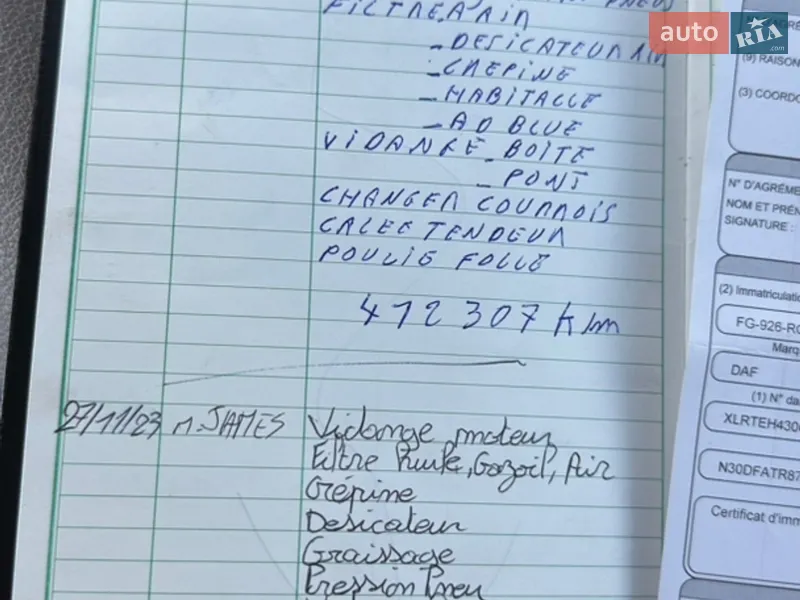 FILTRE A AIR
- DESICATEUR AIR
- CREPINE
- HABITACLE
- AD BLUE
VIDANGE - BOITE
- PONT
CHANGER COURROIS
GALEE TENDEUR
POULIE FOLLE
412 307 Klm
27/11/23 M. JAMES Vidange moteur
Filtre Huile, Gazoil, Air
Crépine
Desicateur
Graissage
Pression Pneu
auto RIA .com
(9) RAISON
(3) COORDO
N° D'AGRÉME
NOM ET PRÉN
SIGNATURE :
(2) Immatriculati
FG-926-R
Marq
DAF
(1) N° da
XLRTEH430
N30DFATR87
Certificat d'imm